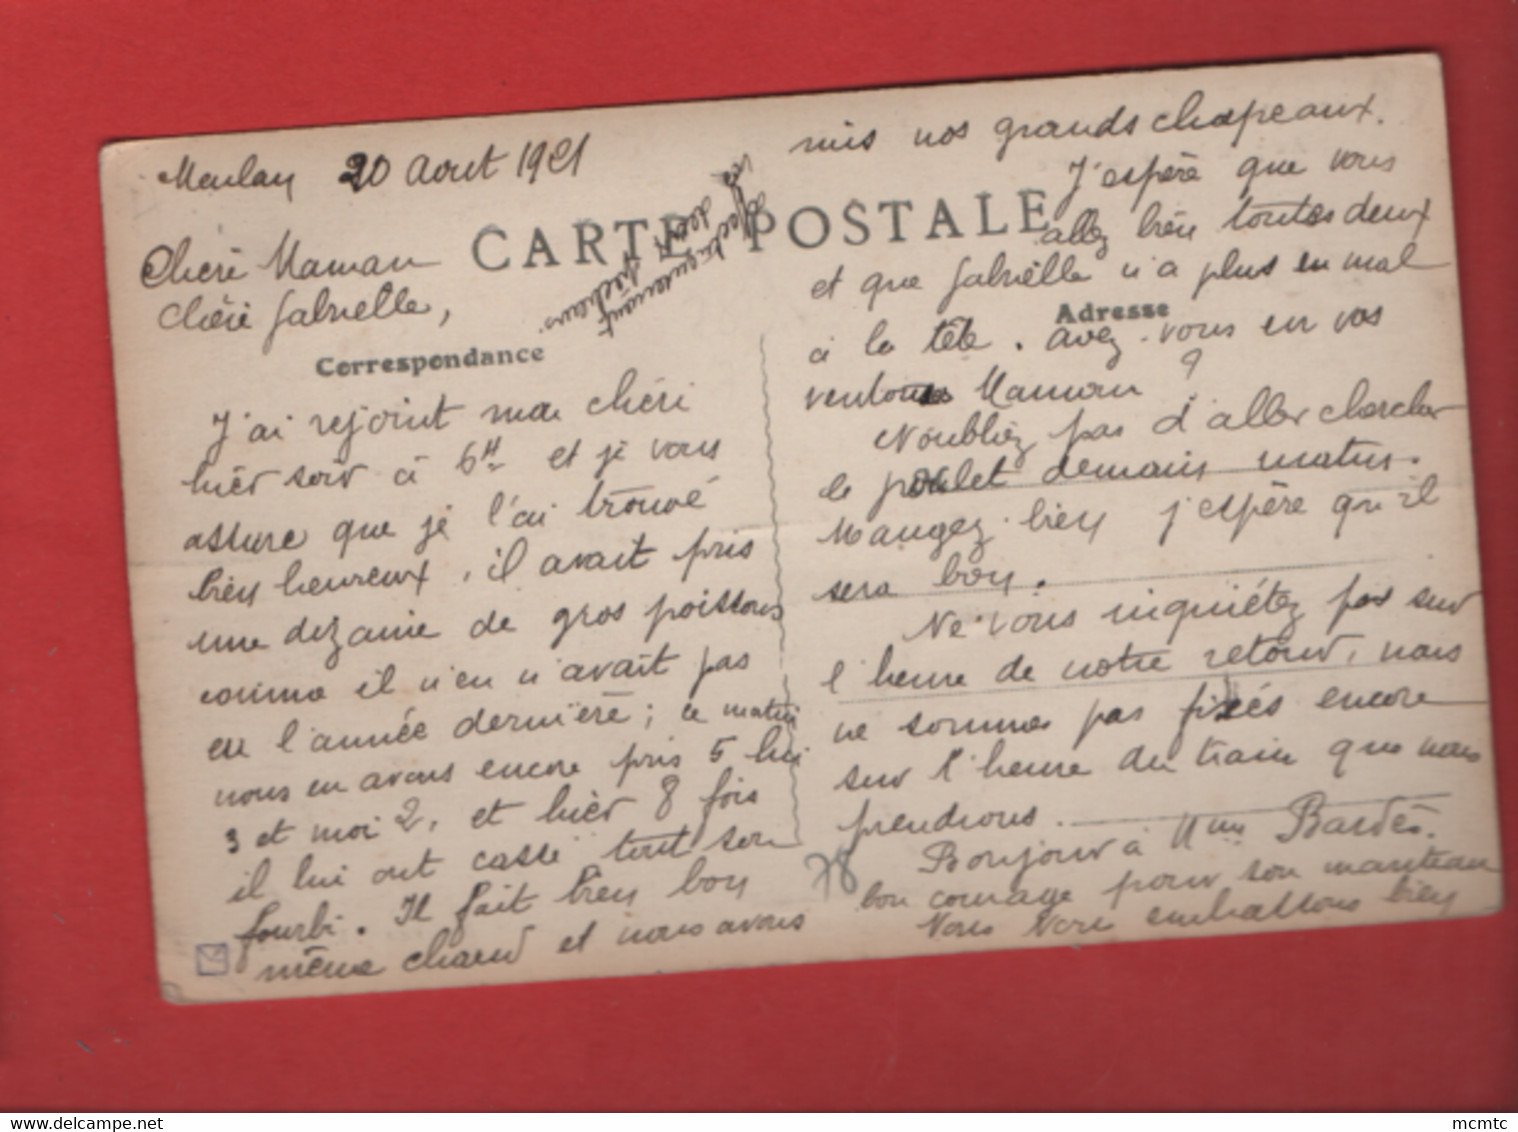 Meulan 20 Aout 1921
CARTE POSTALE
Chère Maman
Chère Gabrielle,
Correspondance
J'ai rejoint mon chéri
hièr soir à 6H et je vous
assure que je l'ai trouvé
bien heureux, il avait pris
une dizaine de gros poissons
comme il n'en n'avait pas
eu l'année dernière ; ce matin
nous en avons encore pris 5 lui
3 et moi 2, et hièr 8 fois
il lui ont cassé tout son
fourbi. Il fait bien bon
même chaud et nous avons
mis nos grands chapeaux.
J'espère que vous
allez bien toutes deux
et que Gabrielle n'a plus eu mal
Adresse
à la tête. Avez-vous eu vos
ventouses Maman ?
N'oubliez pas d'aller chercher
le poulet demain matin.
Mangez-bien j'espère qu'il
sera bon.
Ne vous inquiétez pas sur
l'heure de notre retour, nous
ne sommes pas fixés encore
sur l'heure du train que nous
prendrons.
Bonjour à Mme Bardès.
bon courage pour son manteau
Nous vous embrassons bien
affectueusement
vos deux pêcheurs
78
mcmtc